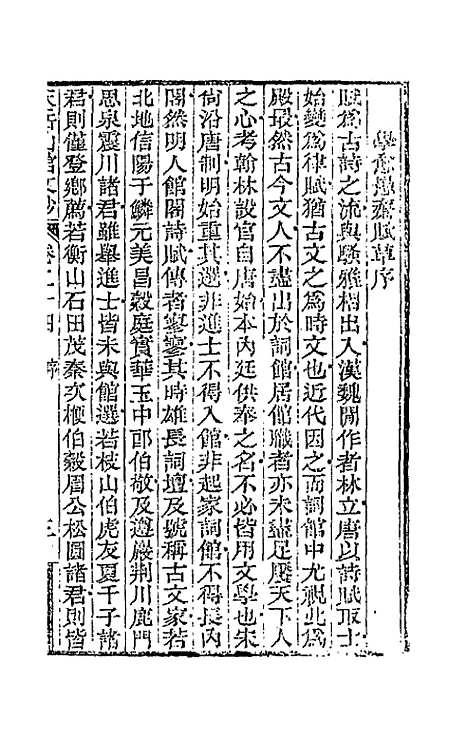 學齋賦草序
賦爲古詩之流與騷雅相出入漢魏閒作者林立唐以詩賦取士
始變爲律賦猶古文之爲時文也近代因之而詞館中尤視此爲
殿最然古今文人不盡出於詞館居館職者亦未盡足饜天下人
之心考翰林設官自唐始本內廷供奉之名不必皆用文學也宋
尙沿唐制明始重其選非進士不得入館非起家詞館不得長內
閣然明人館閣詩賦傳者寥寥其時雄長詞壇及號稱古文家若
北地信陽于鱗元美昌穀庭實華玉中郎伯敬及遵巖荆川鹿門
思泉震川諸君雖舉進士皆未與館選若枝山伯虎友夏千子諸
君則僅登鄉薦若衡山石田茂秦次楩伯穀周公松圓諸君則皆
天岳山館文鈔 卷二十四 序 三